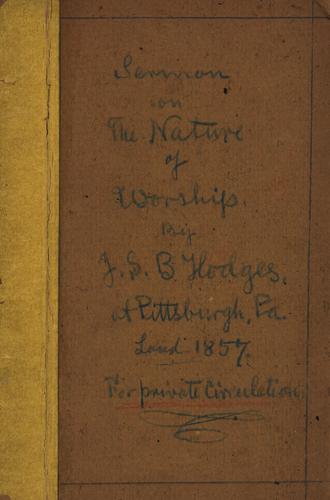 Sermon
on
The Nature
of
Worship.
By
J. S. B. Hodges,
at Pittsburgh, Pa.
1857.
For private Circulation